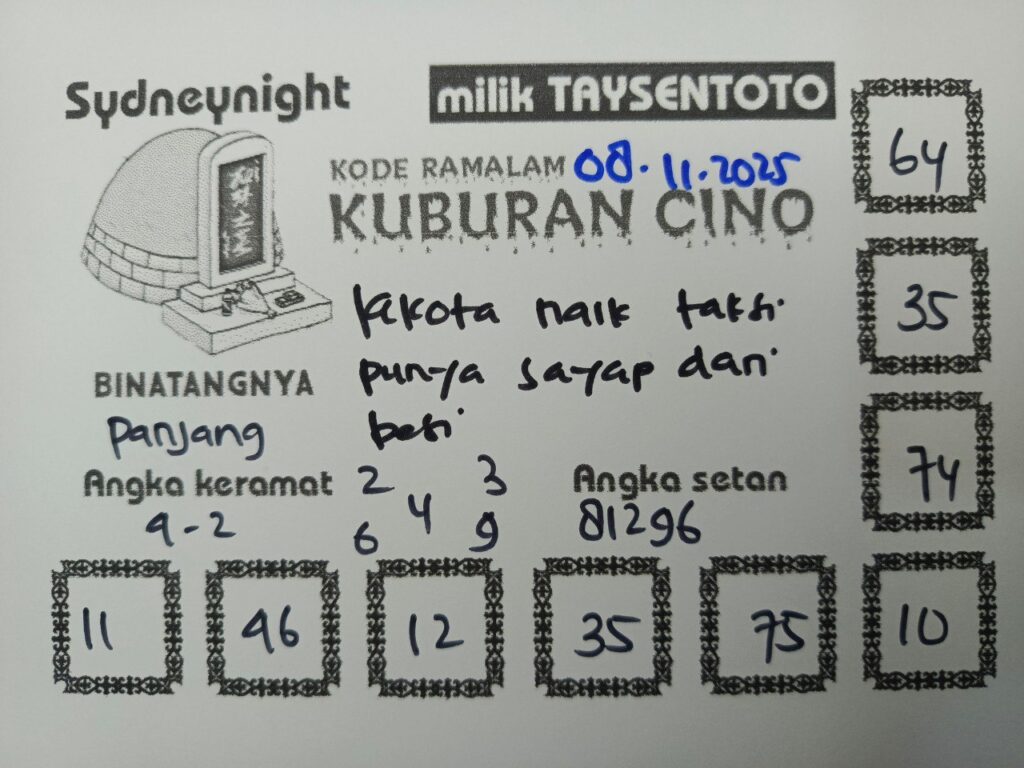 Sydneynight
milik TAYSENTOTO
KODE RAMALAM 08.11.2025
KUBURAN CINO
kikota naik taksi
punya sayap dari
besi
BINATANGNYA
Panjang
Angka keramat
9-2
2 3
4
6 9
Angka setan
81296
64
35
74
11 46 12 35 75 10